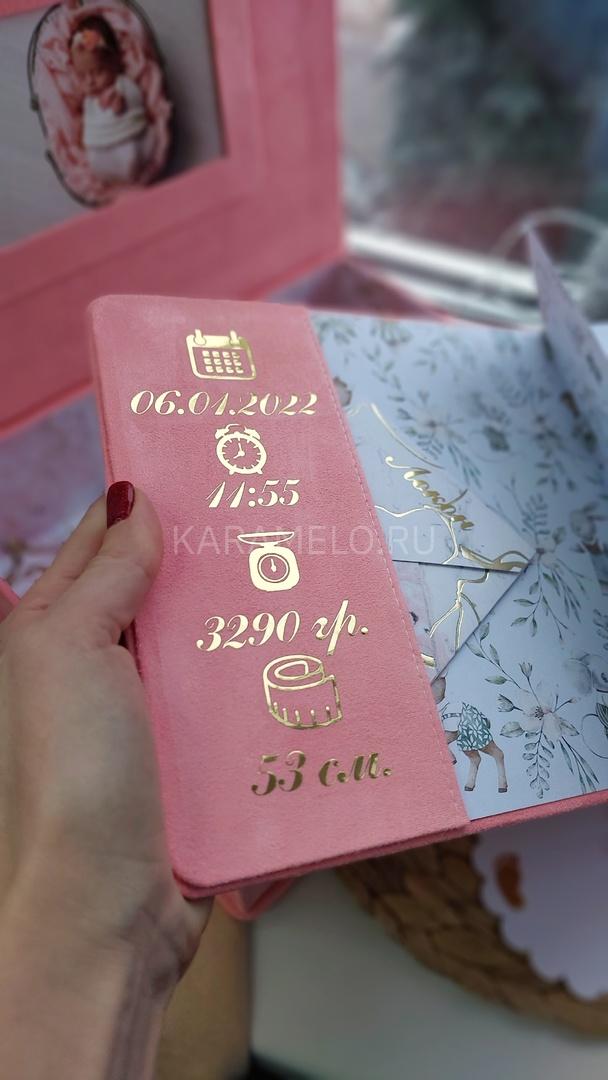 06.01.2022
11:55
KARAMELO.RU
3290 гр.
53 см.